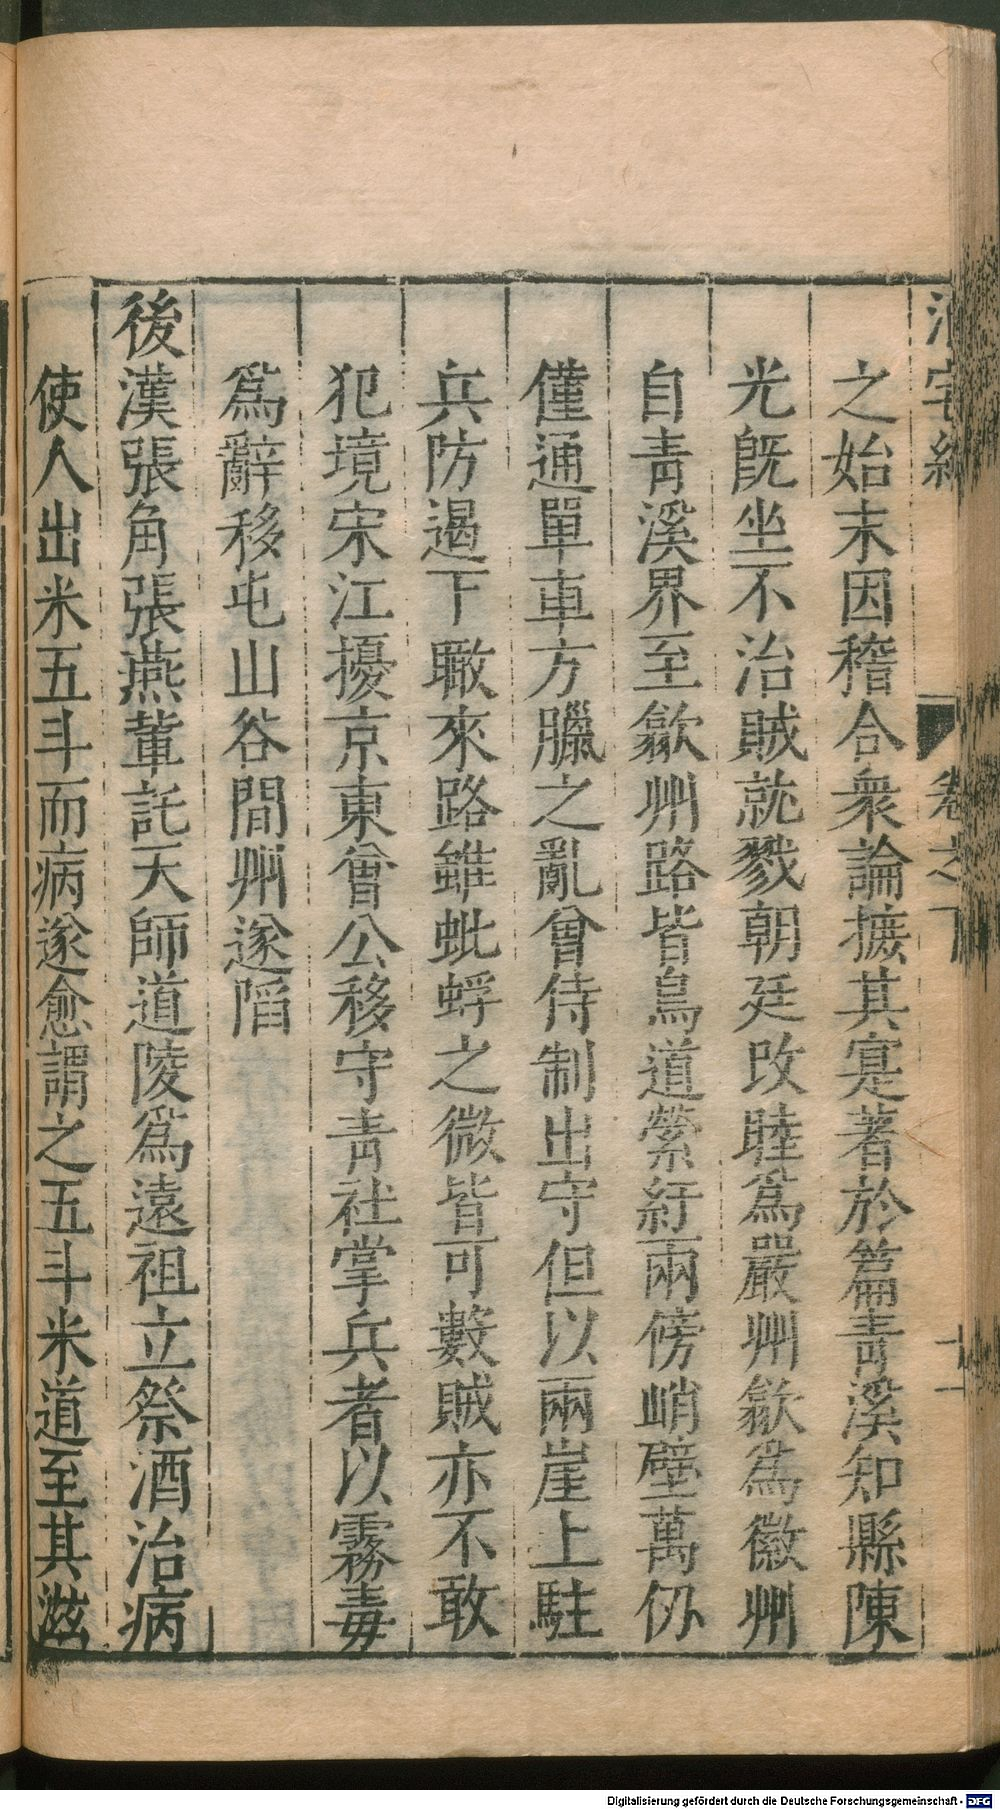 泊宅編 卷之下 十一
之始末因稽合衆論摭其寔著於篇靑溪知縣陳
光旣坐不治賊就戮朝廷改睦爲嚴州歙爲徽州
自靑溪界至歙州路皆鳥道縈紆兩傍峭壁萬仞
僅通單車方臘之亂曾侍制出守但以兩崖上駐
兵防遏下瞰來路雖蚍蜉之微皆可數賊亦不敢
犯境宋江擾京東曾公移守靑社掌兵者以霧毒
爲辭移屯山谷間州遂陷
後漢張角張燕輩託天師道陵爲遠祖立祭酒治病
使人出米五斗而病遂愈謂之五斗米道至其滋
Digitalisierung gefördert durch die Deutsche Forschungsgemeinschaft - DFG